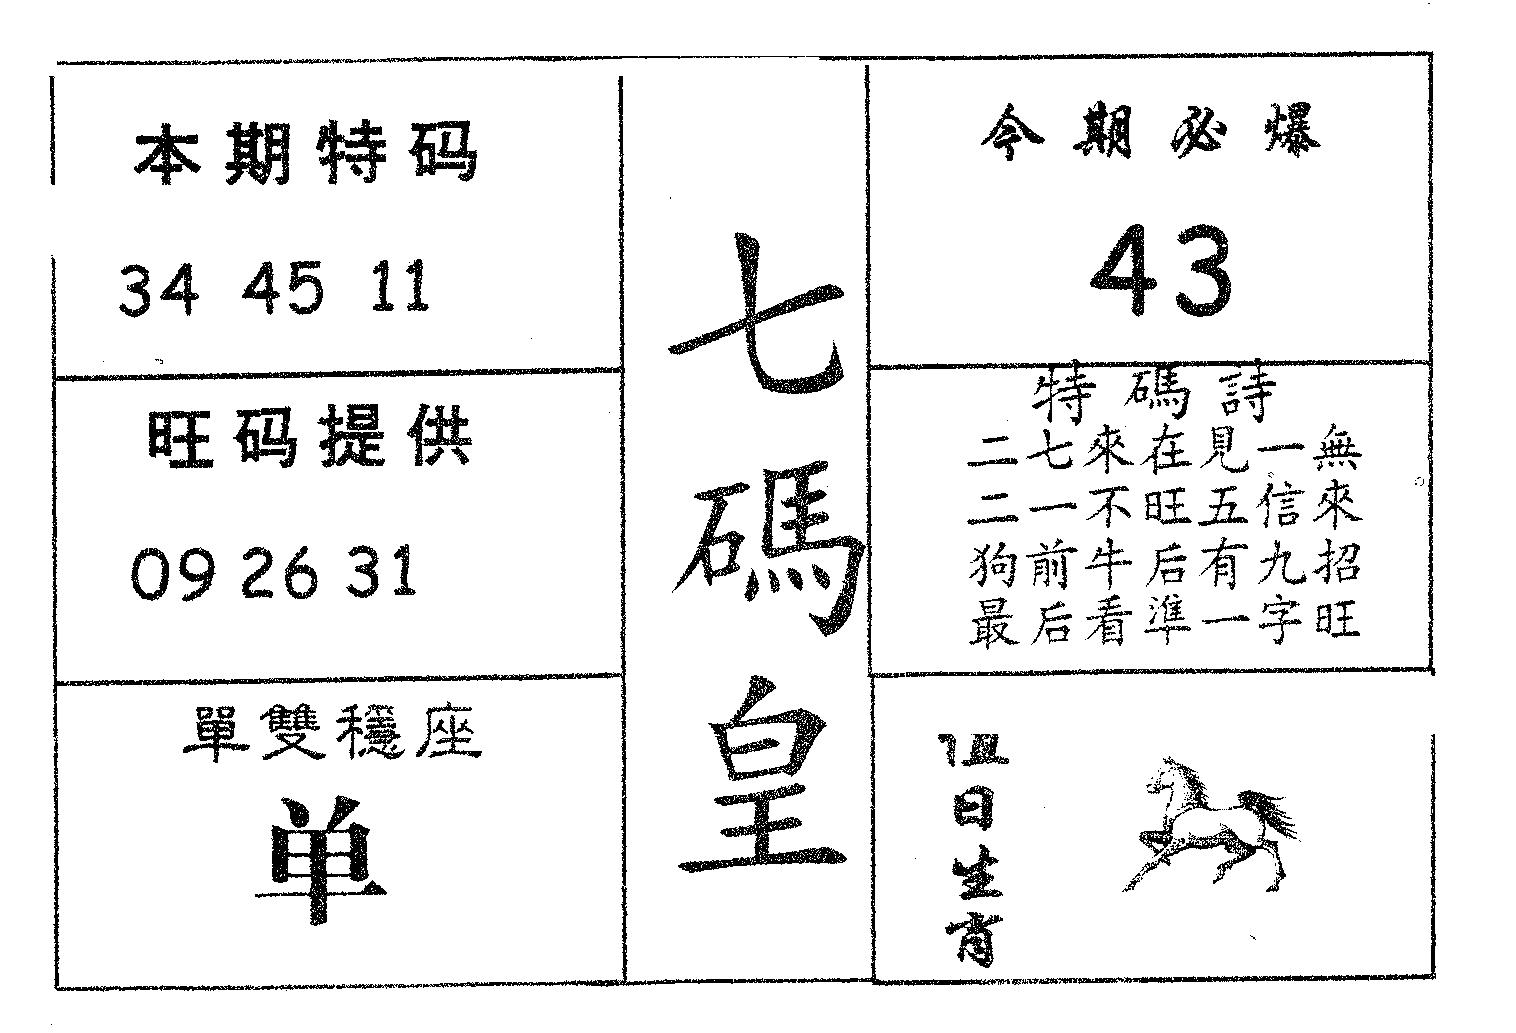 本期特码
34 45 11
旺码提供
09 26 31
單雙穩座
单
七碼皇
今期必爆
43
特碼詩
二七來在見一無
二一不旺五信來
狗前牛后有九招
最后看準一字旺
日生肖